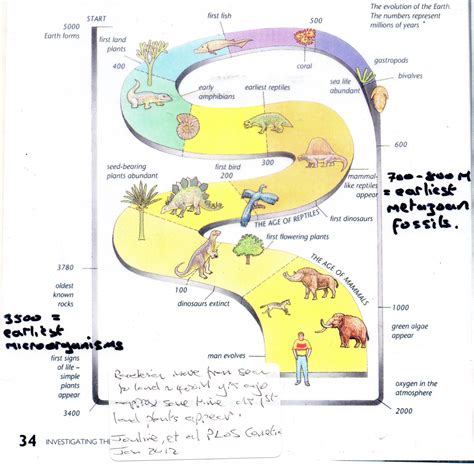 The evolution of the Earth.
The numbers represent
millions of years
START
5000
Earth forms
first land
plants
400
first fish
500
coral
gastropods
bivalves
sea life
abundant
early
amphibians
earliest reptiles
600
seed-bearing
plants abundant
first bird
200
300
mammal-
like reptiles
appear
700-800 M
= earliest
metazoan
fossils.
THE AGE OF REPTILES
first dinosaurs
first flowering plants
3780
oldest
known
rocks
100
dinosaurs extinct
THE AGE OF MAMMALS
3500 =
earliest
microorganisms
1000
green algae
appear
first signs
of life –
simple
plants
appear
man evolves
oxygen in the
atmosphere
3400
2000
Bacteria move from
to land
some time as 1st
land plants appear.
et al PLoS Genetics
Jan 2012
34 INVESTIGATING TH